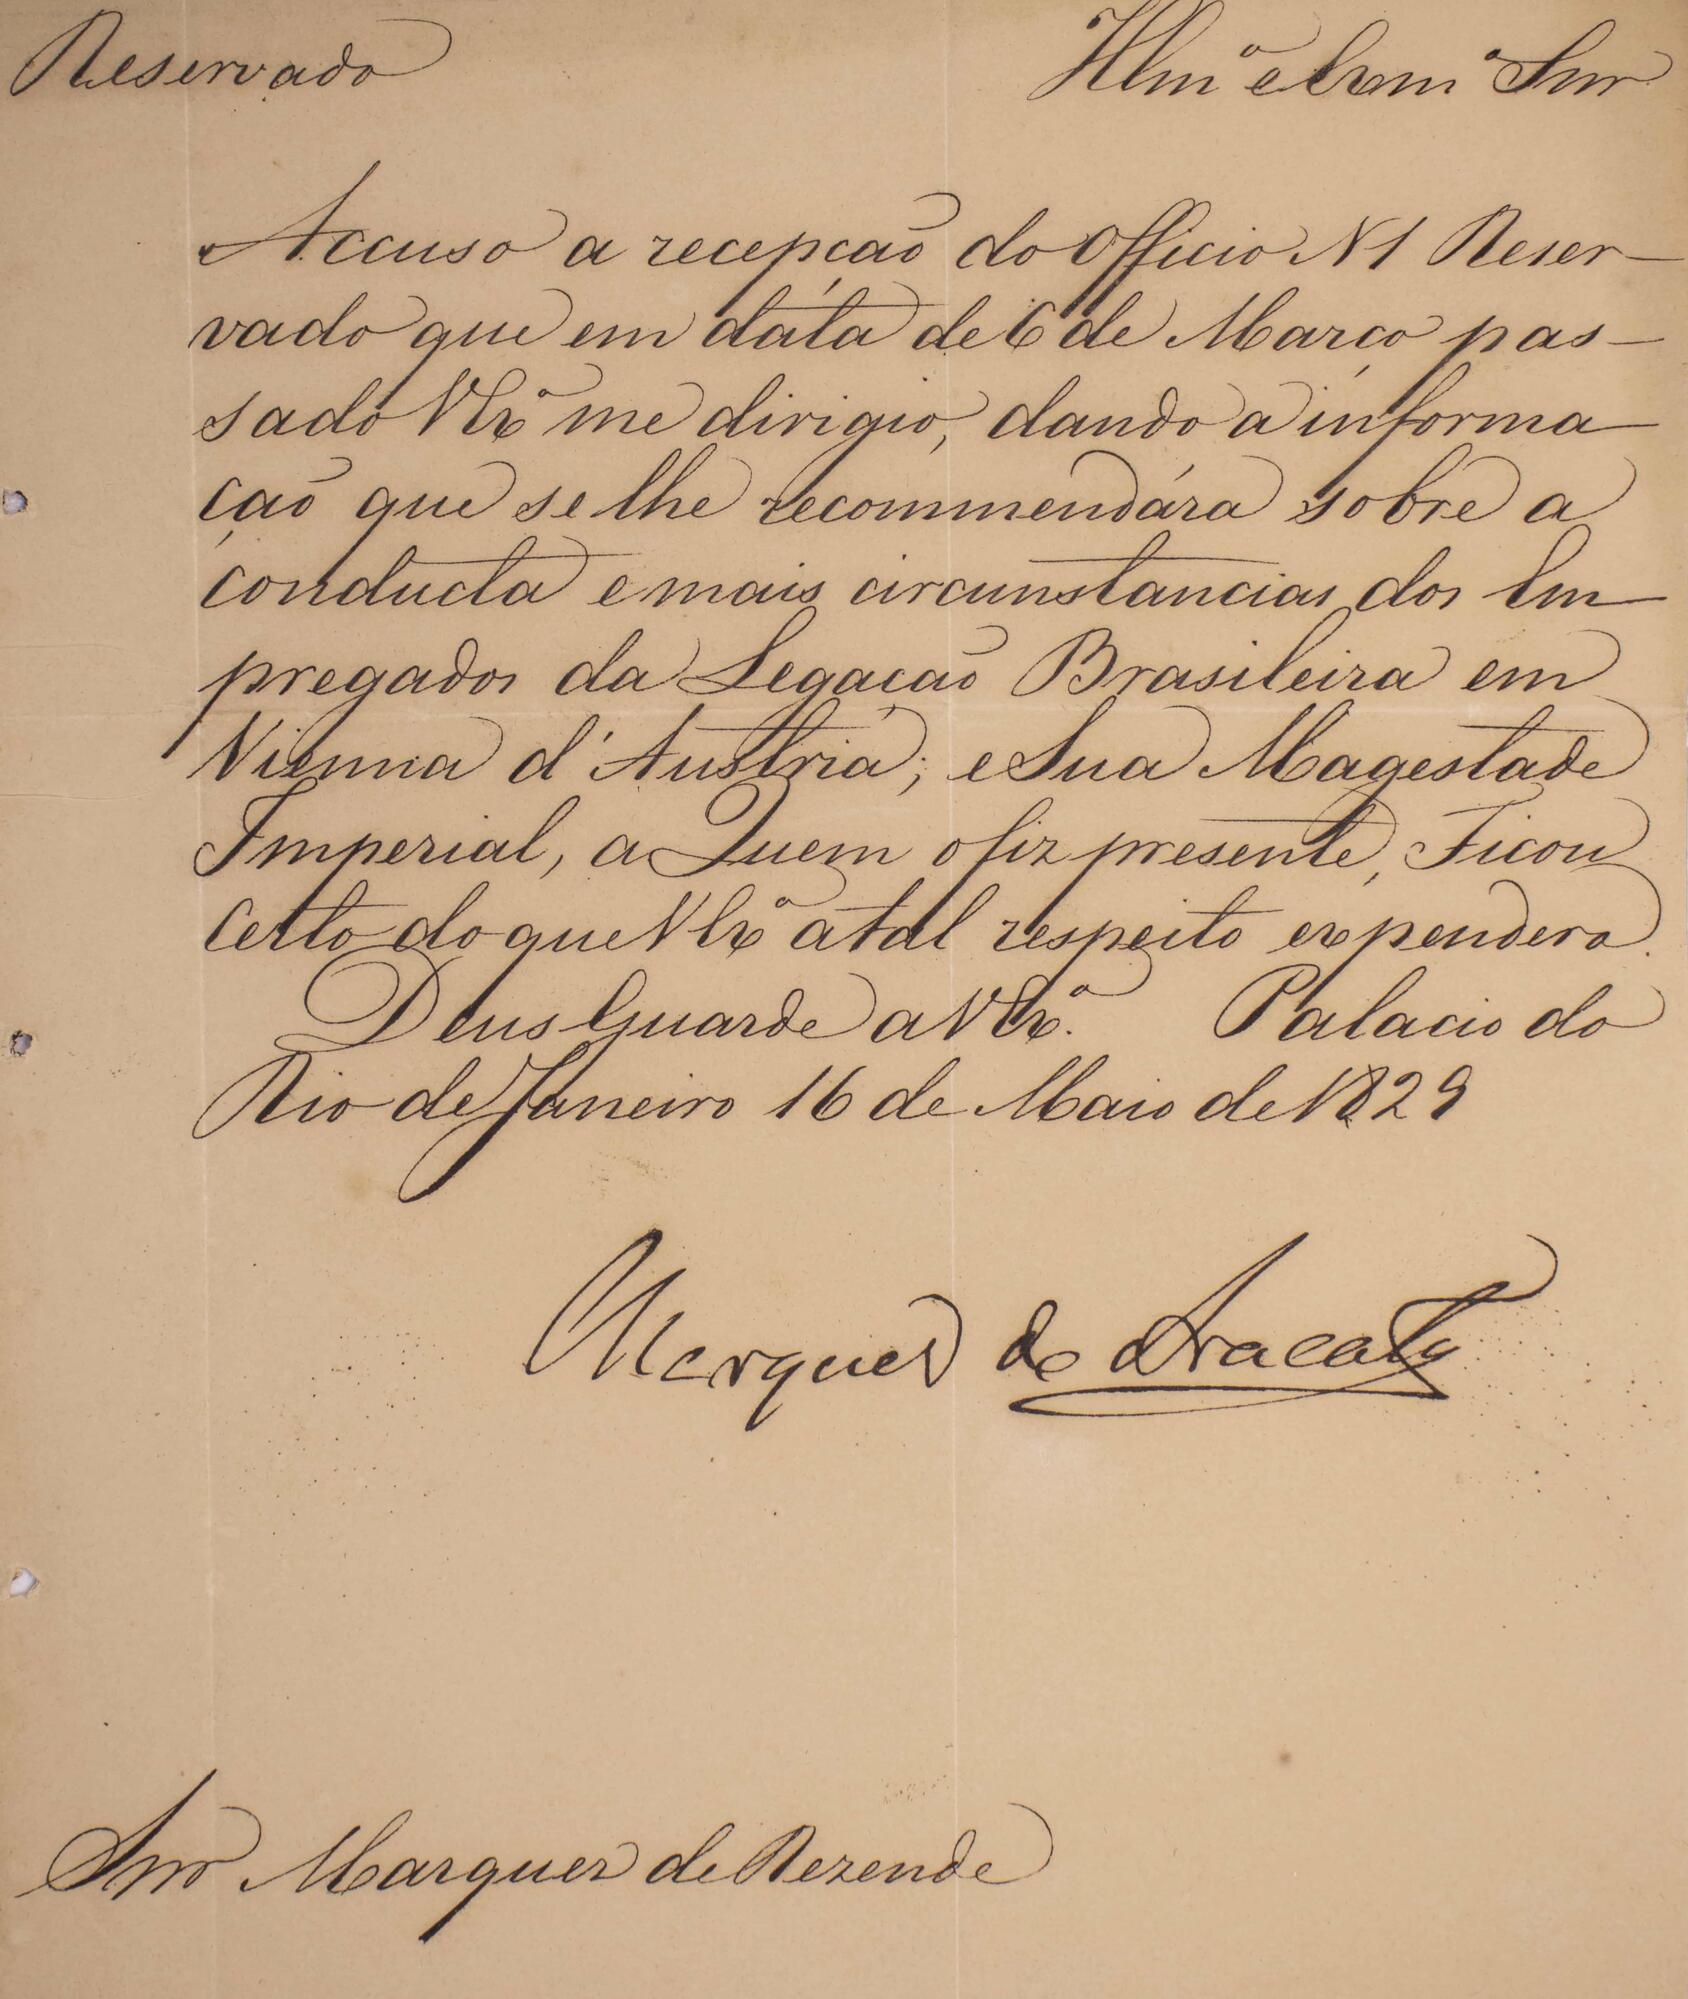 Reservado
Illmº e Exmº Snr
Accuso a recepção do Officio N 1 Reser-
vado que em data de 6 de Março pas-
sado V Exª me dirigio, dando a informa-
ção que se lhe recommendára sobre a
conducta e mais circunstancias dos Em-
pregados da Legação Brasileira em
Vienna d'Austria; e Sua Magestade
Imperial, a Quem o fiz presente, Ficou
Certo do que V Exª a tal respeito expendera.
Deus Guarde a V Exª. Palacio do
Rio de Janeiro 16 de Maio de 1829
Marquez de Aracaty
Snr Marquez de Rezende